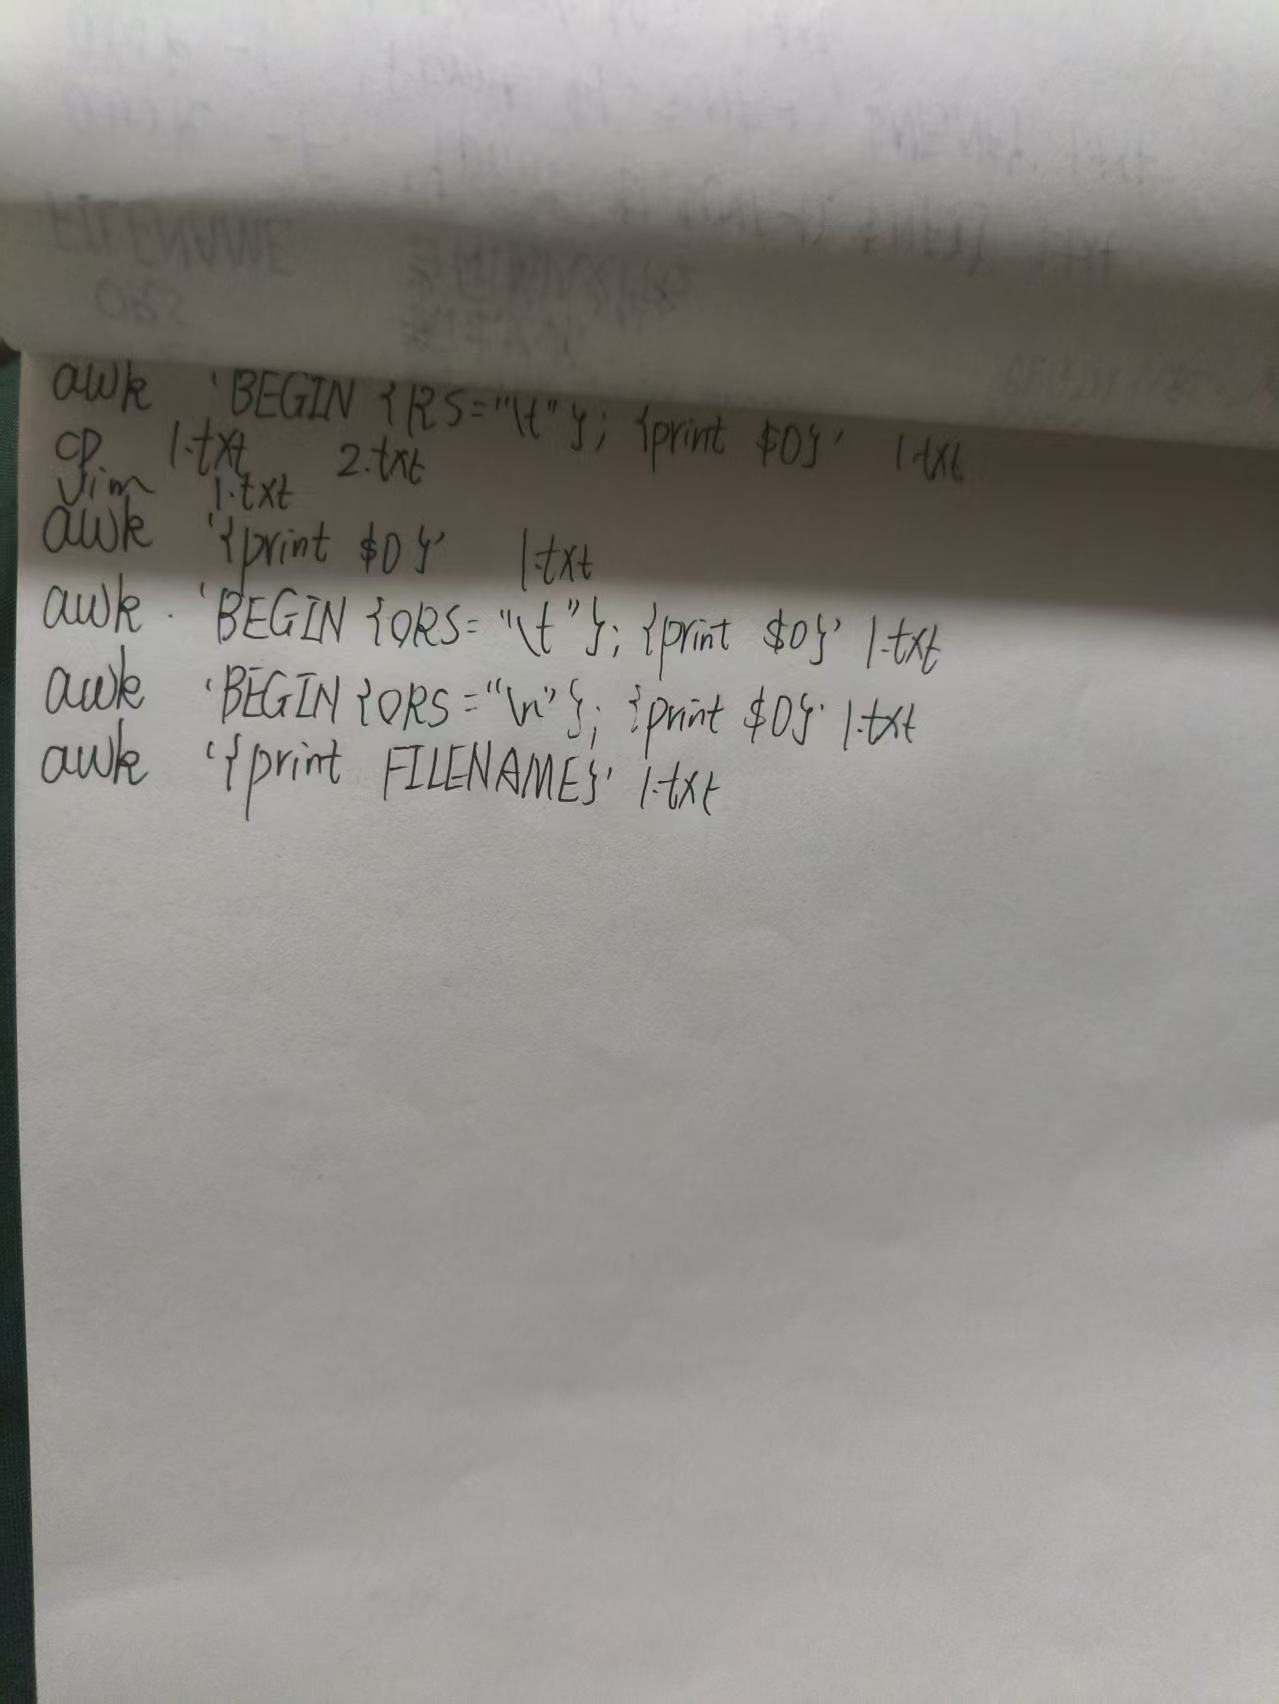 awk 'BEGIN {RS="\t"}; {print $0}' 1.txt
cp 1.txt 2.txt
vim 1.txt
awk '{print $0}' 1.txt
awk 'BEGIN {ORS="\t"}; {print $0}' 1.txt
awk 'BEGIN {ORS="\n"}; {print $0}' 1.txt
awk '{print FILENAME}' 1.txt